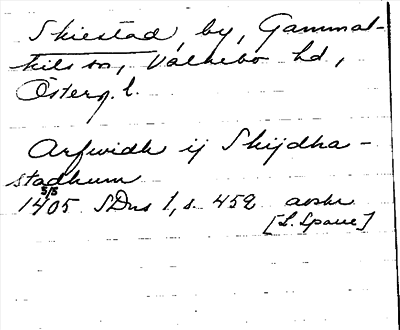 Skiestad, by, Gammal-
kils sn, Valkebo hd,
Österg. l.
Arfwidh ij Skijdha-
stadhum
5/5
1405 SDns 1, s. 452 avskr
[L. Sparre]